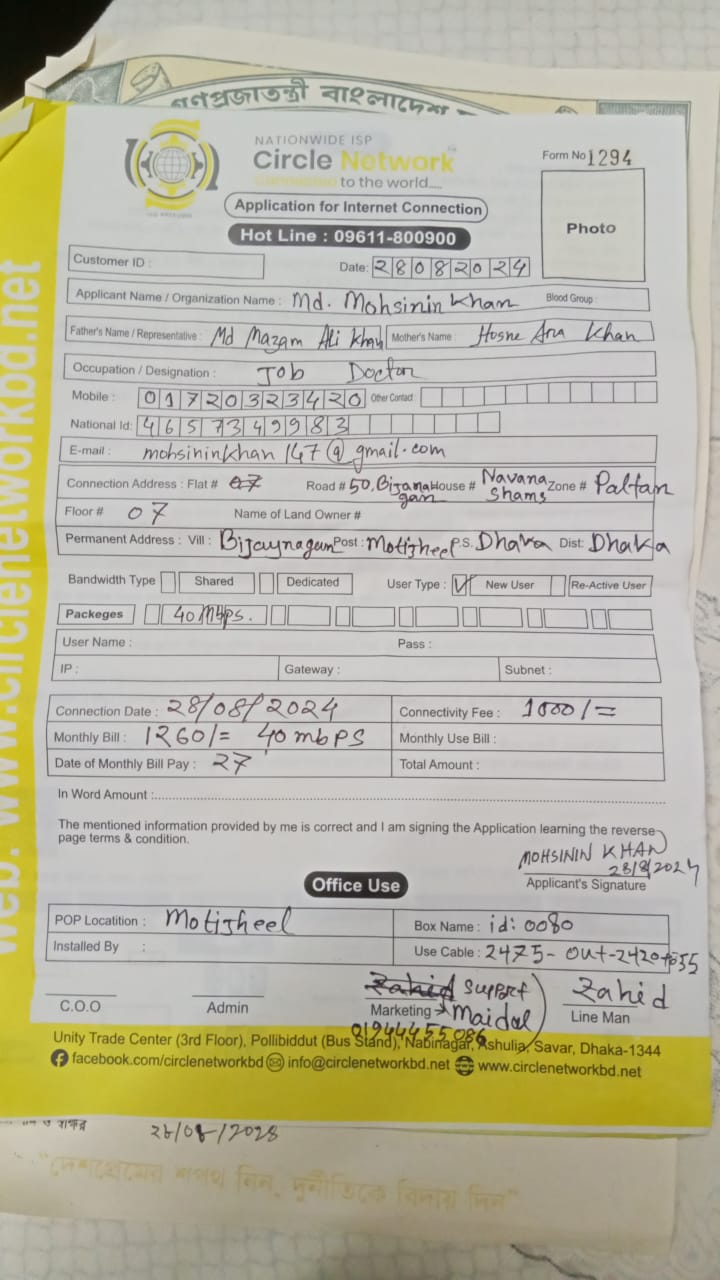 গণপ্রজাতন্ত্রী বাংলাদেশ
NATIONWIDE ISP
Circle Network
Connected to the world....
Form No 1294
Application for Internet Connection
Hot Line : 09611-800900
Photo
Customer ID :
Date: 28082024
Applicant Name / Organization Name : Md. Mohsinin Khan Blood Group :
Father's Name / Representative : Md Mazam Ali Khan Mother's Name : Hosne Ara Khan
Occupation / Designation : Job Doctor
Mobile : 01720323420 Other Contact :
National Id: 4657349983
E-mail : mohsininkhan147@gmail.com
Connection Address : Flat # Road # 50, Bijana House # Navana Zone # Paltan
gan Shams
Floor # 07 Name of Land Owner #
Permanent Address : Vill : Bijaynagar Post : Motijheel P.S. Dhaka Dist: Dhaka
Bandwidth Type Shared Dedicated User Type : New User Re-Active User
Packeges 40 Mbps.
User Name : Pass :
IP : Gateway : Subnet :
Connection Date : 28/08/2024 Connectivity Fee : 1000/=
Monthly Bill : 1260/= 40 mbps Monthly Use Bill :
Date of Monthly Bill Pay : 27 Total Amount :
In Word Amount :
The mentioned information provided by me is correct and I am signing the Application learning the reverse
page terms & condition.
MOHSININ KHAN
28/8/2024
Applicant's Signature
Office Use
POP Locatition : Motijheel Box Name : id: 0080
Installed By : Use Cable : 2475- out-2420
Zahid support Zahid
C.O.O Admin Marketing Line Man
01944455086
Unity Trade Center (3rd Floor), Pollibiddut (Bus Stand), Nabinagar, Ashulia, Savar, Dhaka-1344
facebook.com/circlenetworkbd info@circlenetworkbd.net www.circlenetworkbd.net
web: www.circlenetworkbd.net
"দেশপ্রেমের শপথ নিন, দুর্নীতিকে বিদায় দিন"